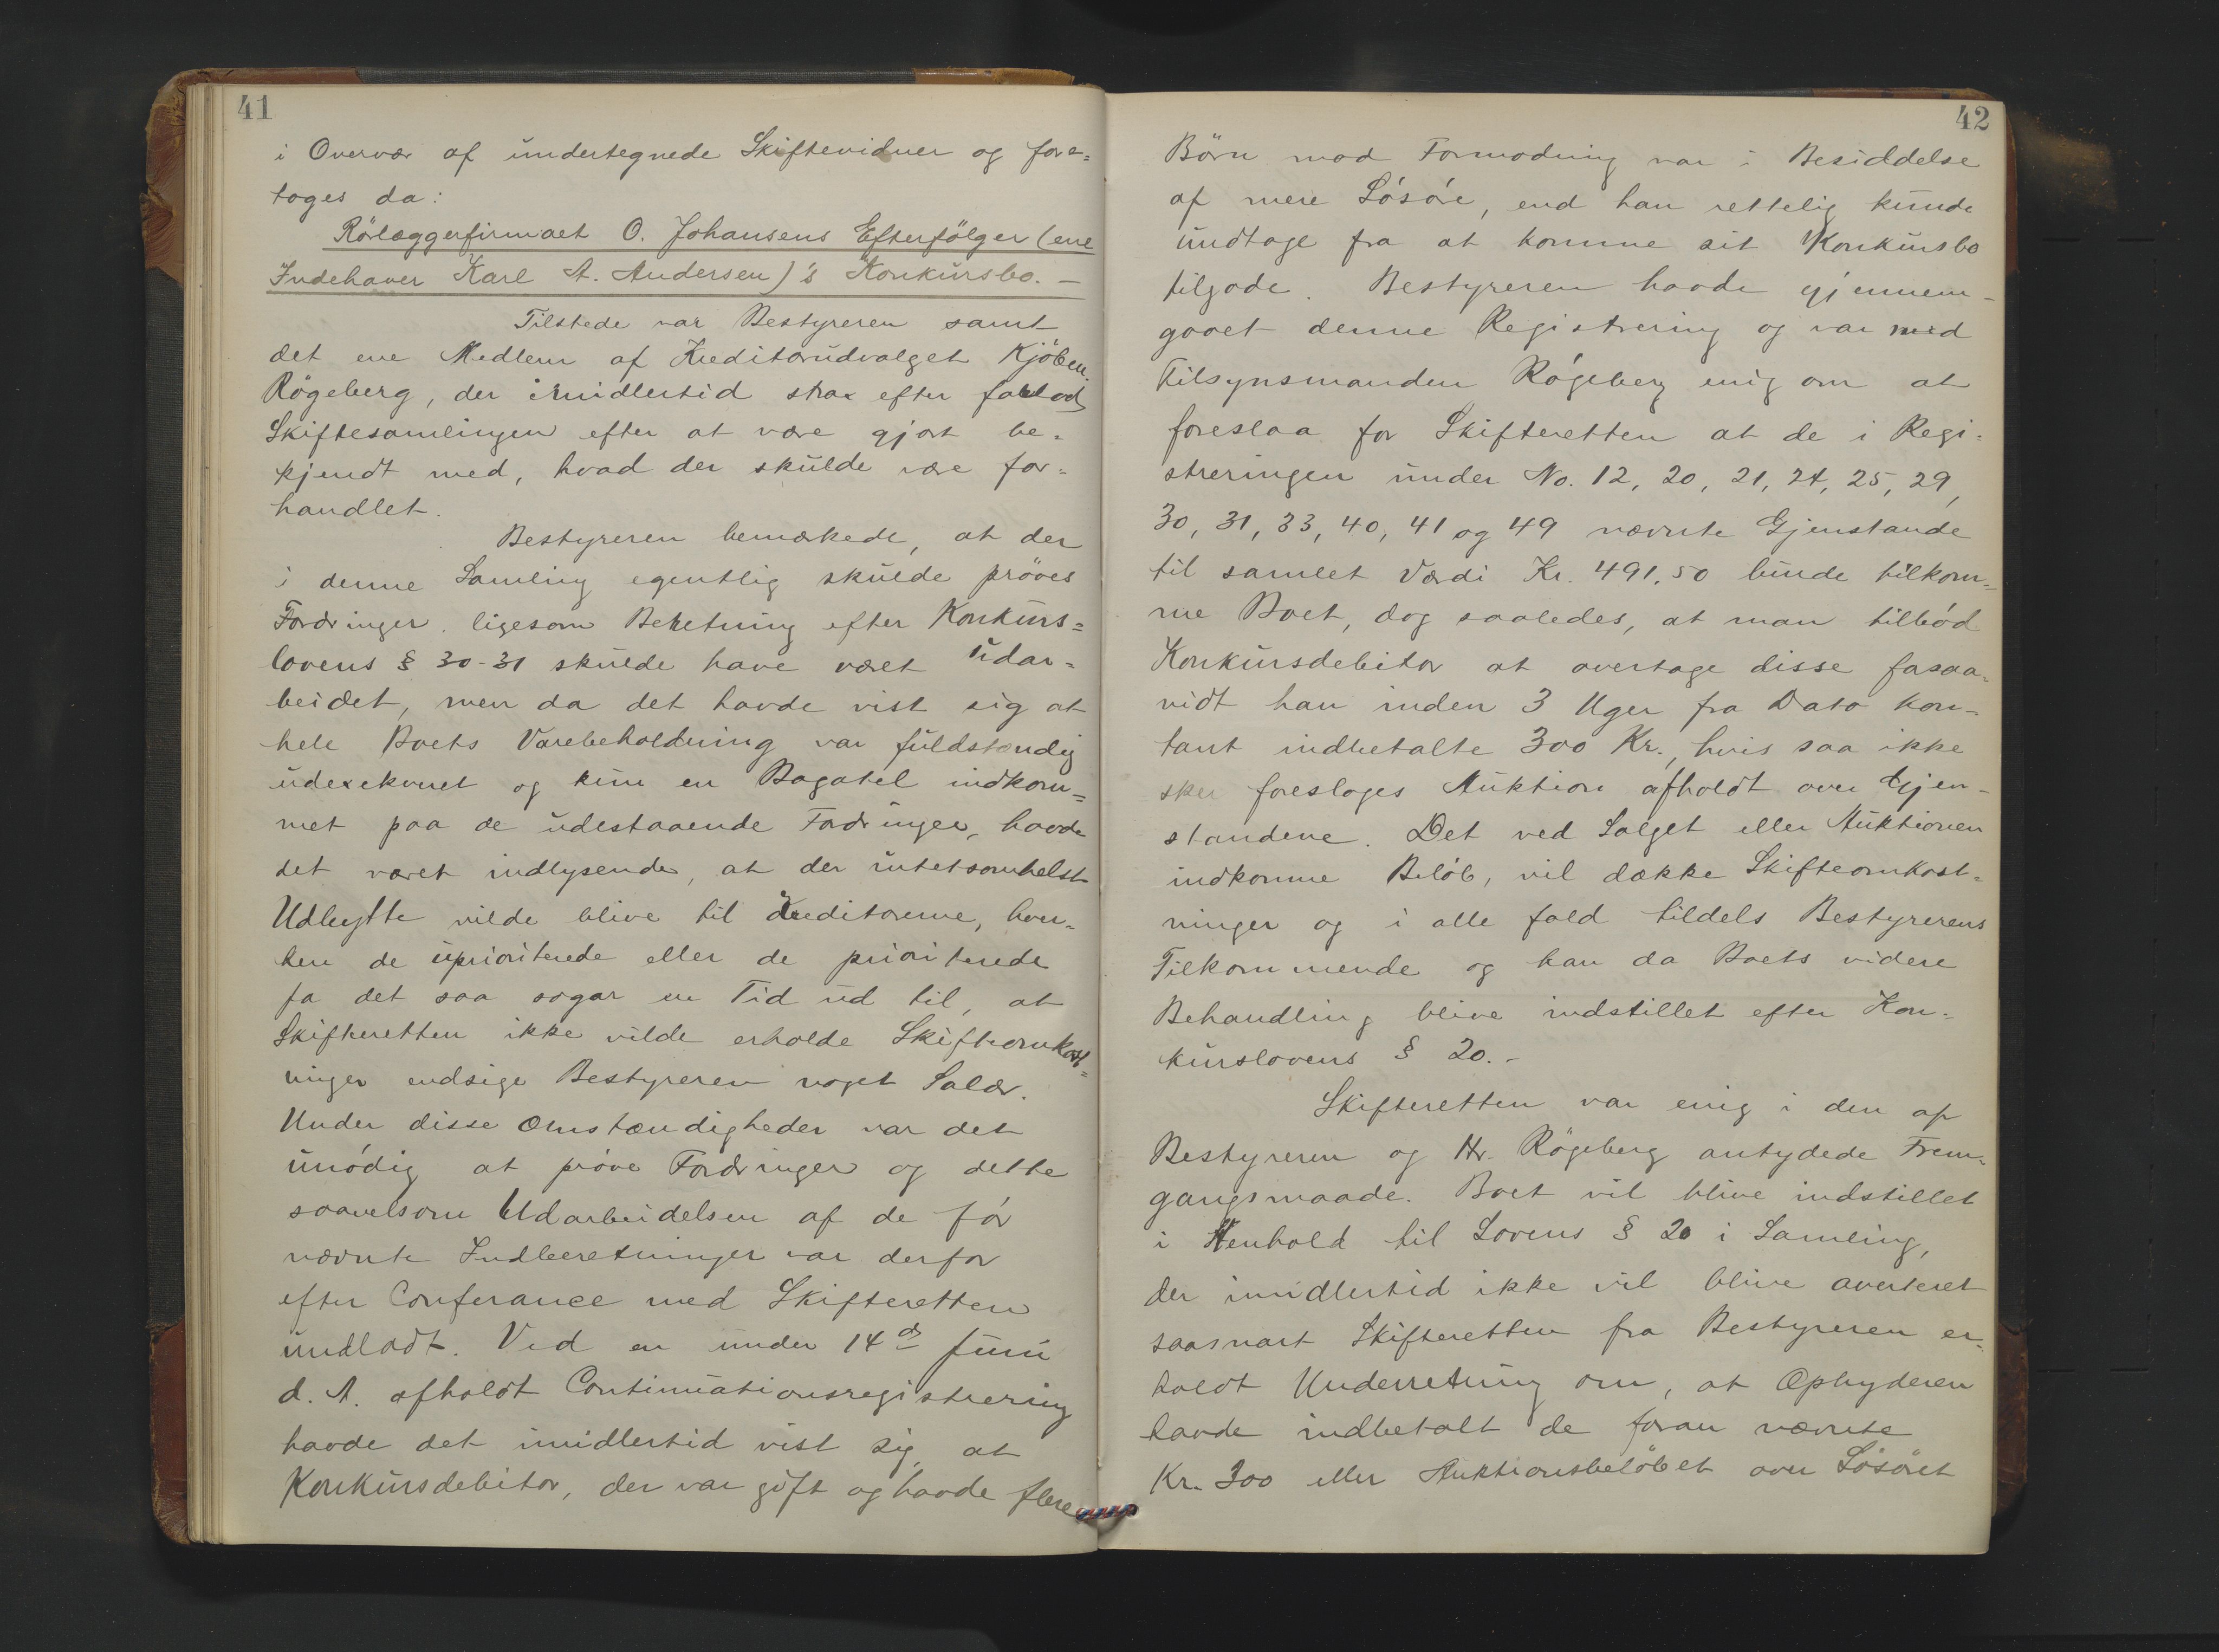 41
i Overvær af undertegnede Skiftevidner og fore=
toges da:
Rörlæggerfirmaet O. Johansens Efterfölger (ene
Indehaver Karl A. Andersen)'s Konkursbo. –
Tilstede var Bestyreren samt
det ene Medlem af Kreditorudvalget Kjöbm.
Rögeberg, der imidlertid strax efter forlod
Skiftesamlingen efter at være gjort be=
kjendt med, hvad der skulde være for=
handlet.
Bestyreren bemærkede, at der
i denne Samling egentlig skulde pröves
Fordringer, ligesom Beretning efter Konkurs=
lovens § 30-31 skulde have været udar=
beidet, men da det havde vist sig at
hele Boets Varebeholdning var fuldstændig
udexekveret og kun en Bagatel indkom=
met paa de udestaaende Fordringer, havde
det været indlysende, at der intetsomhelst
Udbytte vilde blive til Kreditorerne, hver=
ken de uprioriterede eller de prioriterede
ja det saa sogar en Tid ud til, at
Skifteretten ikke vilde erholde Skifteomkost=
ninger endsige Bestyreren noget Salær.
Under disse Omstændigheder var det
unödig at pröve Fordringer og dette
saavelsom Udarbeidelsen af de för
nævnte Indberetninger var derfor
efter Conferance med Skifteretten
undladt. Ved en under 14d Juni
d. A. afholdt Continuationsregistrering
havde det imidlertid vist sig, at
Konkursdebitor, der var gift og havde flere
42
Börn mod Formodning var i Besiddelse
af mere Lösöre, end han rettelig kunde
undtage fra at komme sit Konkursbo
tilgode. Bestyreren havde gjennem-
gaaet denne Registrering og var med
Tilsynsmanden Rögeberg enig om at
foreslaa for Skifteretten at de i Regi=
streringen under No. 12, 20, 21, 24, 25, 29,
30, 31, 33, 40, 41 og 49 nævnte Gjenstande
til samlet Værdi Kr. 491,50 burde tilkom=
me Boet, dog saaledes, at man tilböd
Konkursdebitor at overtage disse forsaa-
vidt han inden 3 Uger fra Dato kon-
tant indbetalte 300 Kr., hvis saa ikke
sker foresloges Auktion afholdt over Gjen-
standene. Det ved Salget eller Auktionen
indkomne Belöb, vil dække Skifteomkost=
ninger og i alle fald tildels Bestyrerens
Tilkommende og kan da Boets videre
Behandling blive indstillet efter Kon-
kurslovens § 20. –
Skifteretten var enig i den af
Bestyreren og Hr. Rögeberg antydede Frem-
gangsmaade. Boet vil blive indstillet
i Henhold til Lovens § 20 i Samling,
der imidlertid ikke vil blive averteret
saasnart Skifteretten fra Bestyreren er-
holdt Underretning om, at Opbyderen
havde indbetalt de foran nævnte
Kr. 300 eller Auktionsbelöbet over Lösöret